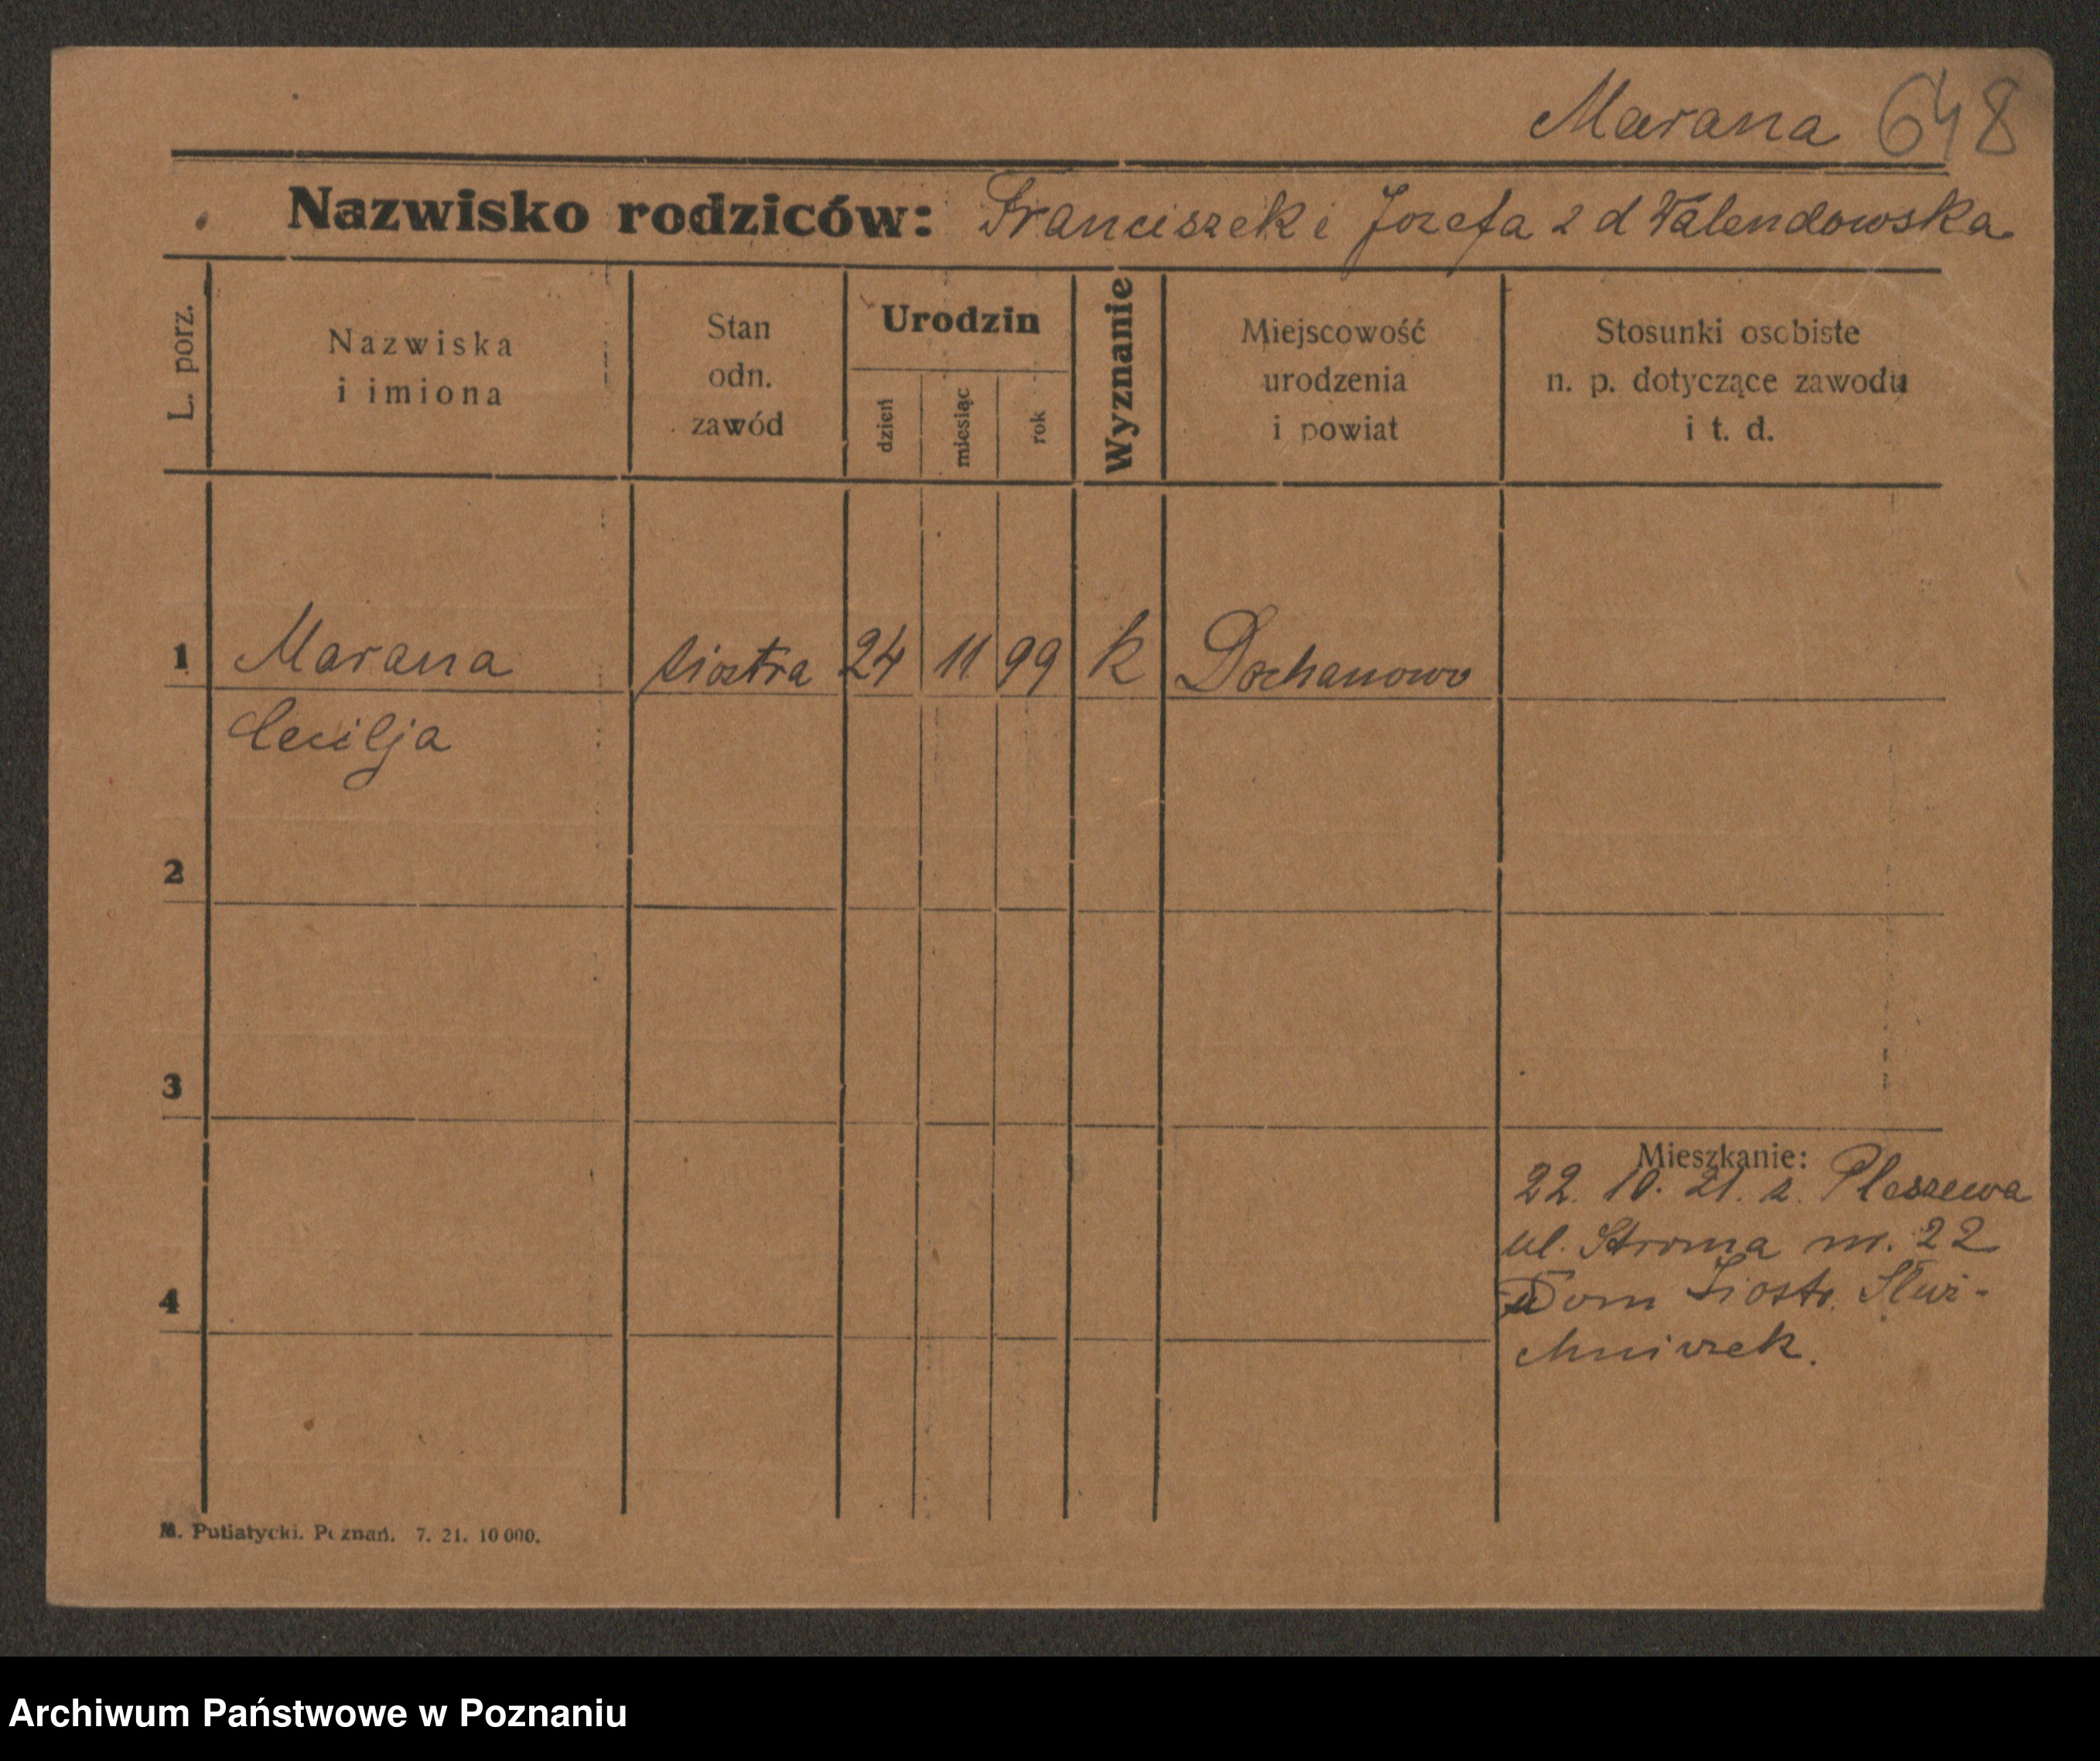 Marana 648
Nazwisko rodziców: Franciszek i Jozefa z d Walendowska
L. porz.
Nazwiska
i imiona
Stan
odn.
zawód
Urodzin
dzień
miesiąc
rok
Wyznanie
Miejscowość
urodzenia
i powiat
Stosunki osobiste
n. p. dotyczące zawodu
i t. d.
1 Marana siostra 24 11 99 k Dochanowo
Cecilja
2
3
Mieszkanie:
22. 10. 21. z. Pleszewa
ul. Stroma nr. 22
Dom Siostr.
4
M. Putiatycki. Poznań. 7. 21. 10 000.
Archiwum Państwowe w Poznaniu